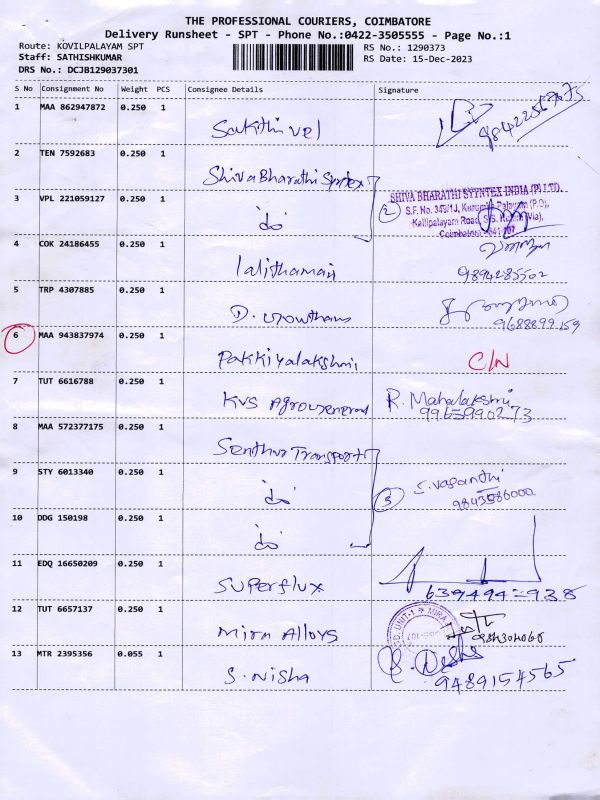 THE PROFESSIONAL COURIERS, COIMBATORE
Delivery Runsheet - SPT - Phone No.:0422-3505555 - Page No.:1
Route: KOVILPALAYAM SPT RS No.: 1290373
Staff: SATHISHKUMAR RS Date: 15-Dec-2023
DRS No.: DCJB129037301
S No Consignment No Weight PCS Consignee Details Signature
1 MAA 862947872 0.250 1
Sakithi vel
2 TEN 7592683 0.250 1
Shiva Bharathi Syntex
3 VPL 221059127 0.250 1 SHIVA BHARATHI SYYNTEX INDIA (P) LTD.
do 2 S.F. No. 345/1J,
Kallipalayam Road,
4 COK 24186455 0.250 1
Lalithamani 9894285502
5 TRP 4307885 0.250 1
D. Gowtham 9688899159
6 MAA 943837974 0.250 1
Pakkiyalakshmi C/N
7 TUT 6616788 0.250 1 R. Mahalakshmi
KVS 9965990273
8 MAA 572377175 0.250 1
Senthur Transport
9 STY 6013340 0.250 1 S. Vasanthi
do 3 9843586000
10 DDG 150198 0.250 1
do
11 EDQ 16650209 0.250 1
Superflux
12 TUT 6657137 0.250 1
Mira Alloys
13 MTR 2395356 0.055 1
S. Nisha 9489154565